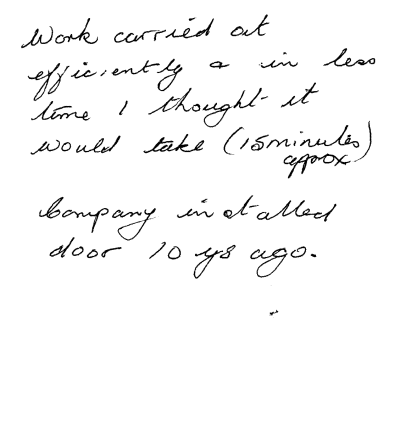 Work carried out
efficiently & in less
time I thought it
would take (15minutes)
approx
Company installed
door 10 ys ago.